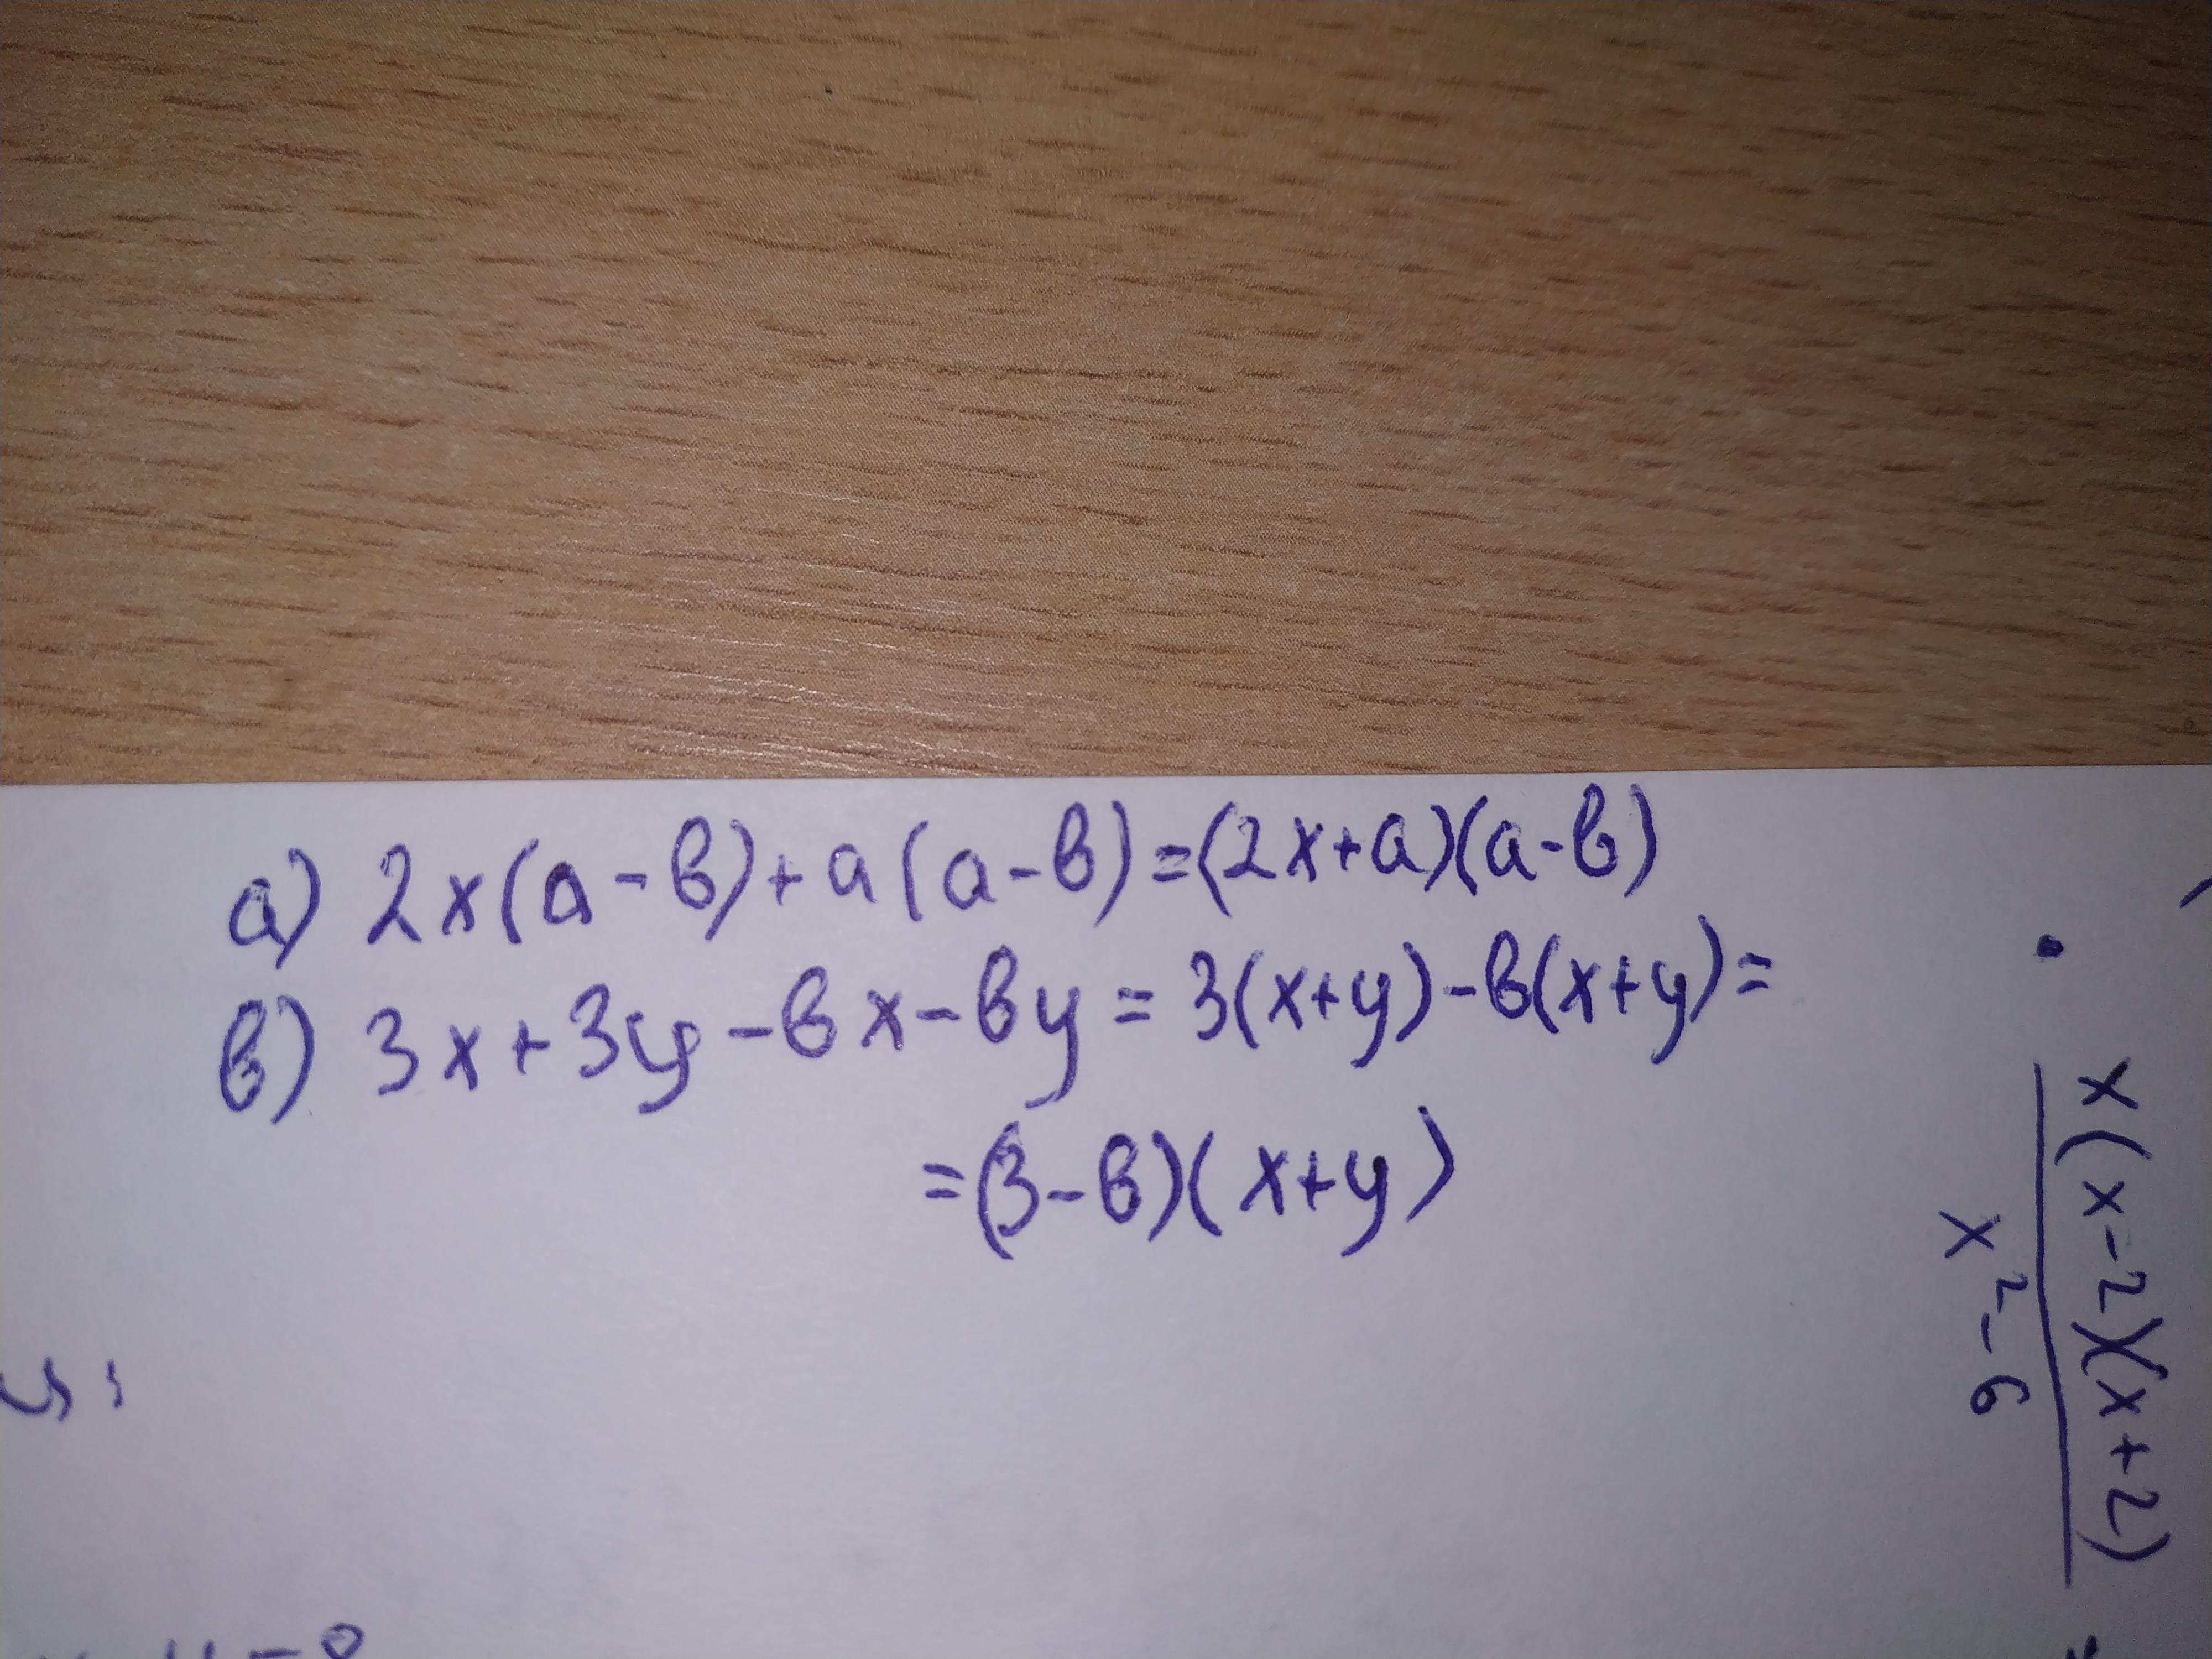 а) 2x(a-в)+a(a-в)=(2x+a)(a-в)
в) 3x+3y-вx-вy=3(x+y)-в(x+y)=
=(3-в)(x+y)
x(x-2)(x+2)
x²-6